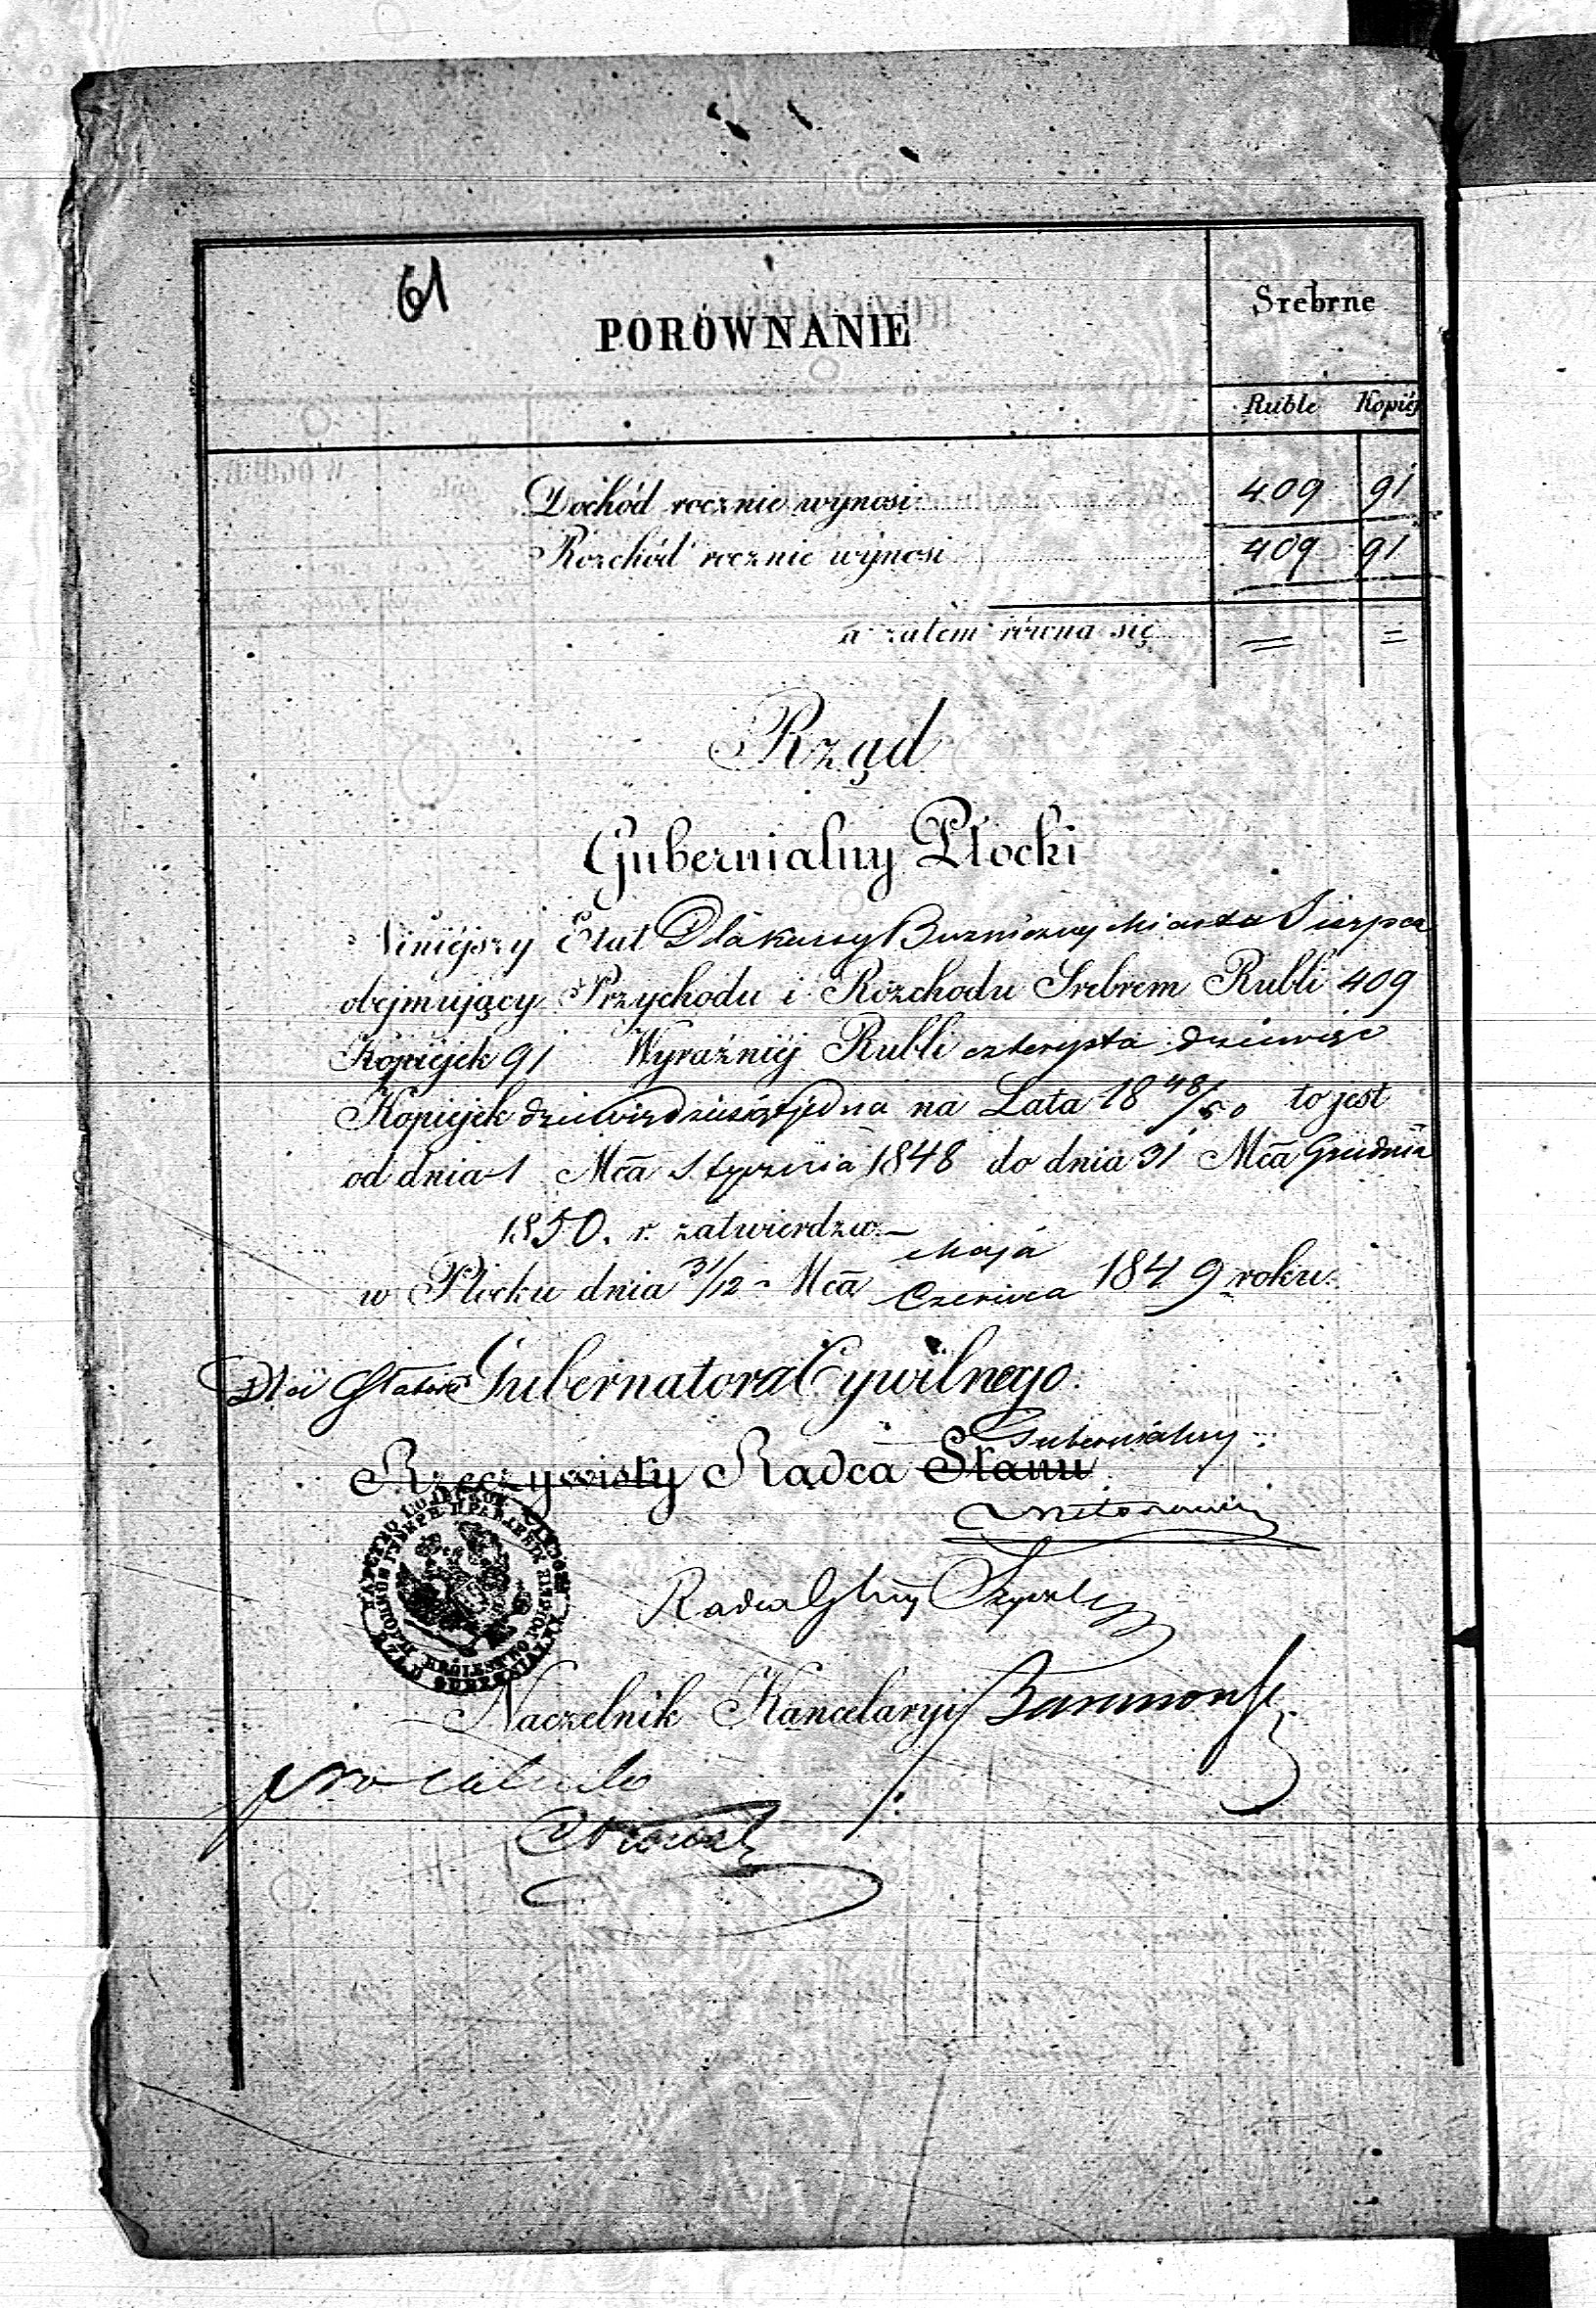 61
PORÓWNANIE
Srebrne
Ruble Kopiej
Dochód rocznie wynosi 409 91
Rozchód rocznie wynosi 409 91
a zatem równa się = =
Rząd
Gubernialny Płocki
Niniejszy Etat Dla Kassy Bużniczny Miasta Sierpca
obejmujący Przychodu i Rozchodu Srebrem Rubli 409
Kopiejek 91 Wyraźniej Rubli czterysta dziewięć
Kopiejek dziewięćdziesiąt jedna na Lata 18 48/50 to jest
od dnia 1 Mca Stycznia 1848 do dnia 31 Mca Grudnia
1850. r. zatwierdza.
Maja
w Płocku dnia 31/12 Mca Czerwca 1849 roku.
Gubernatora Cywilnego.
Gubernialny
Rzeczywisty Radca Stanu
Radca
KRÓLESTWO POLSKIE
RZĄD GUBERNIALNY
Naczelnik Kancelaryi
pro calculo